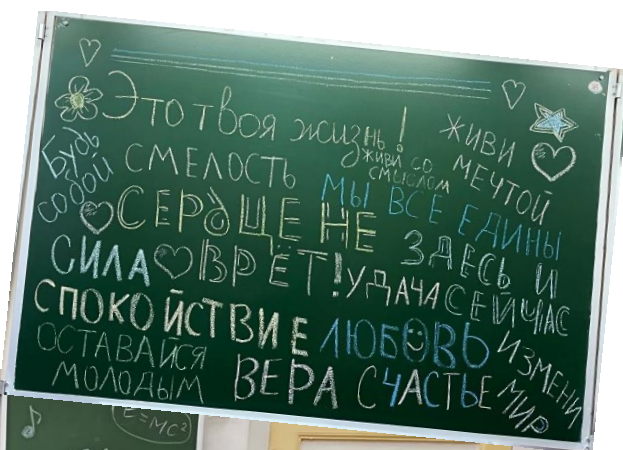 Это твоя жизнь!
живи со
смыслом
живи
мечтой
Будь
собой
смелость
мы все едины
Сердце не
врёт!
здесь и
сейчас
сила
удача
спокойствие
любовь
измени
мир
оставайся
молодым
вера
счастье
E=MC²